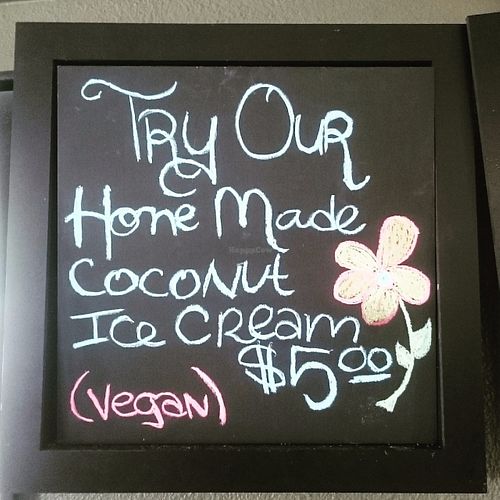 Try Our
Home Made
Coconut
Ice Cream
$5.00
(vegan)